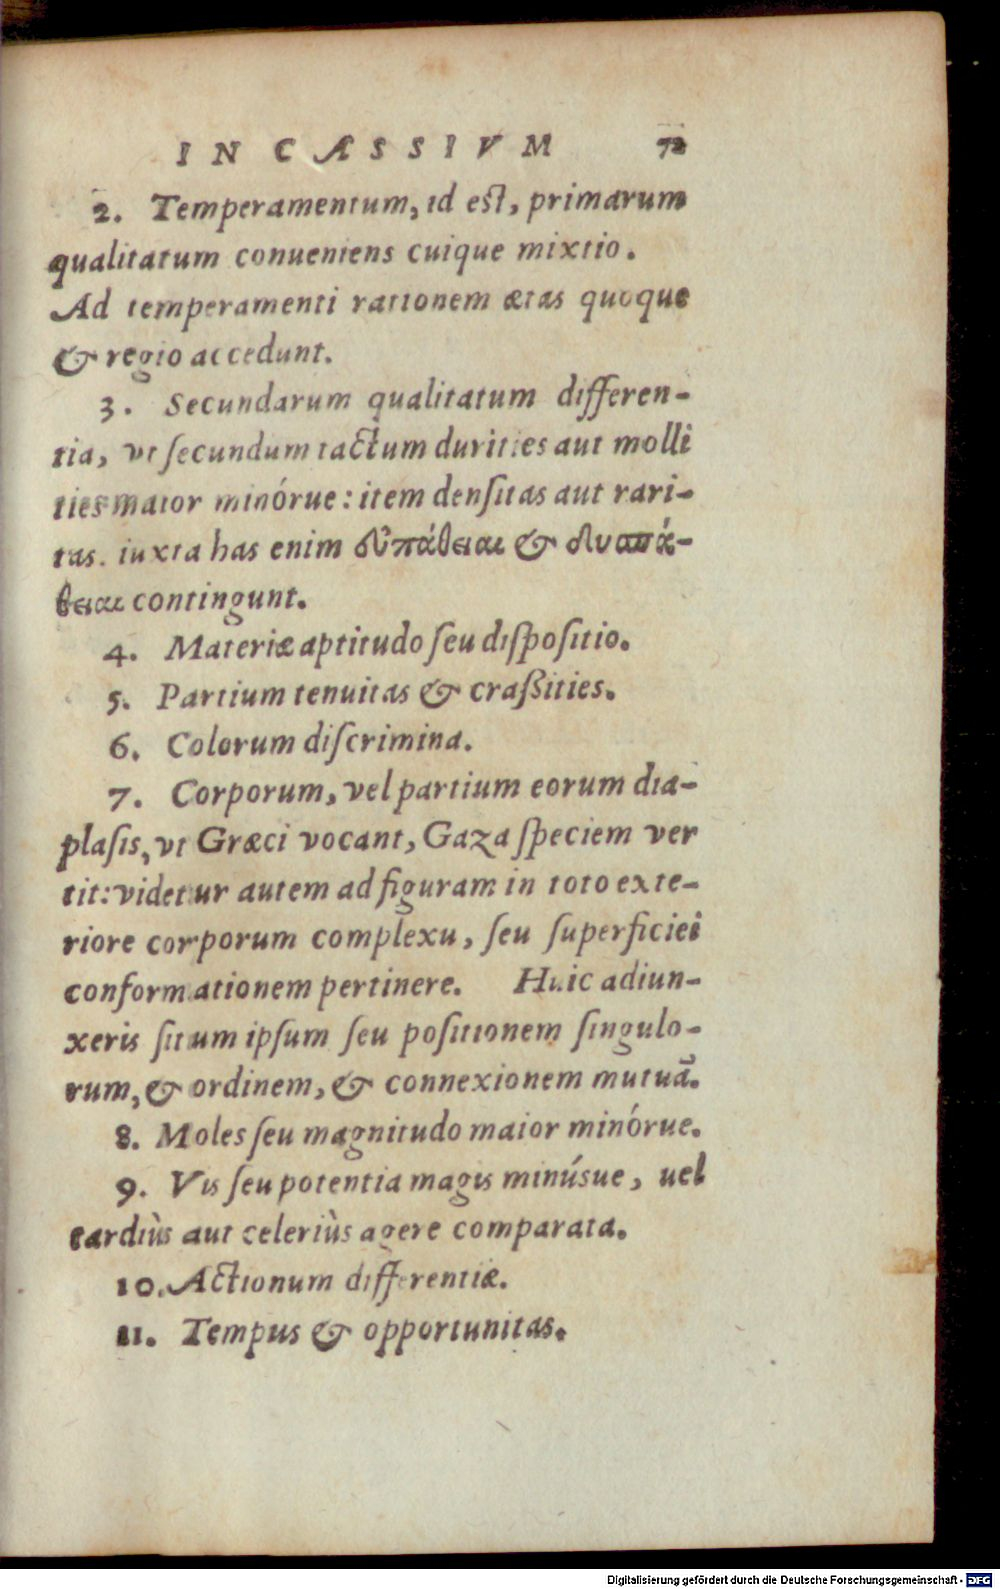 IN CÆSSIVM 72
2. Temperamentum, id est, primarum
qualitatum conueniens cuique mixtio.
Ad temperamenti rationem ætas quoque
& regio accedunt.
3. Secundarum qualitatum differen-
tia, vt ſecundum tactum durities aut molli
ties maior minórue: item denſitas aut rari-
tas. iuxta has enim εὐπάθειαι & δυσπά-
θειαι contingunt.
4. Materiæ aptitudo ſeu diſpoſitio.
5. Partium tenuitas & craßities.
6. Colorum diſcrimina.
7. Corporum, vel partium eorum dia-
plaſis, vt Græci vocant, Gaza ſpeciem ver
tit: videtur autem ad figuram in toto exte-
riore corporum complexu, ſeu ſuperficiei
conformationem pertinere. Huic adiun-
xeris ſitum ipſum ſeu poſitionem ſingulo-
rum, & ordinem, & connexionem mutuã.
8. Moles ſeu magnitudo maior minórue.
9. Vis ſeu potentia magis minúsue, uel
tardiùs aut celeriùs agere comparata.
10. Actionum differentiæ.
11. Tempus & opportunitas.
Digitalisierung gefördert durch die Deutsche Forschungsgemeinschaft - DFG